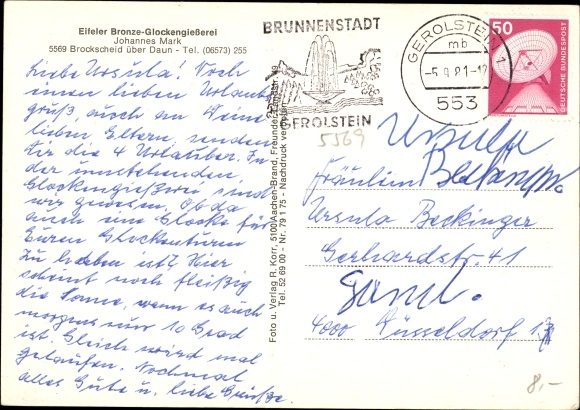 Eifeler Bronze-Glockengießerei
Johannes Mark
5569 Brockscheid über Daun - Tel. (06573) 255
Liebe Ursula! Noch
einen lieben Urlaubs
gruß, auch an Deine
lieben Eltern, senden
Dir die 4 Urlauber. In
der umstehenden
Glockengießerei sind
wir gewesen. Ob da
auch eine Glocke für
Euren Glockenturm
zu haben ist? Hier
scheint noch fleißig
die Sonne, wenn es auch
morgens nur 10 Grad
ist. Gleich wird mal
gelaufen. Nochmal
alles Gute u. liebe Grüße.
Foto u. Verlag R. Korr, 5100 Aachen-Brand, Freunder
Tel. 52 69 00 - Nr. 79 1 75 - Nachdruck
BRUNNENSTADT
GEROLSTEIN
GEROLSTEIN 1
mb
-5.9.81-12
553
50
DEUTSCHE BUNDESPOST
5569
Ursula
Fräulein
Ursula Beckinger
Gerhardstr. 41
4000 Düsseldorf 1
8,-